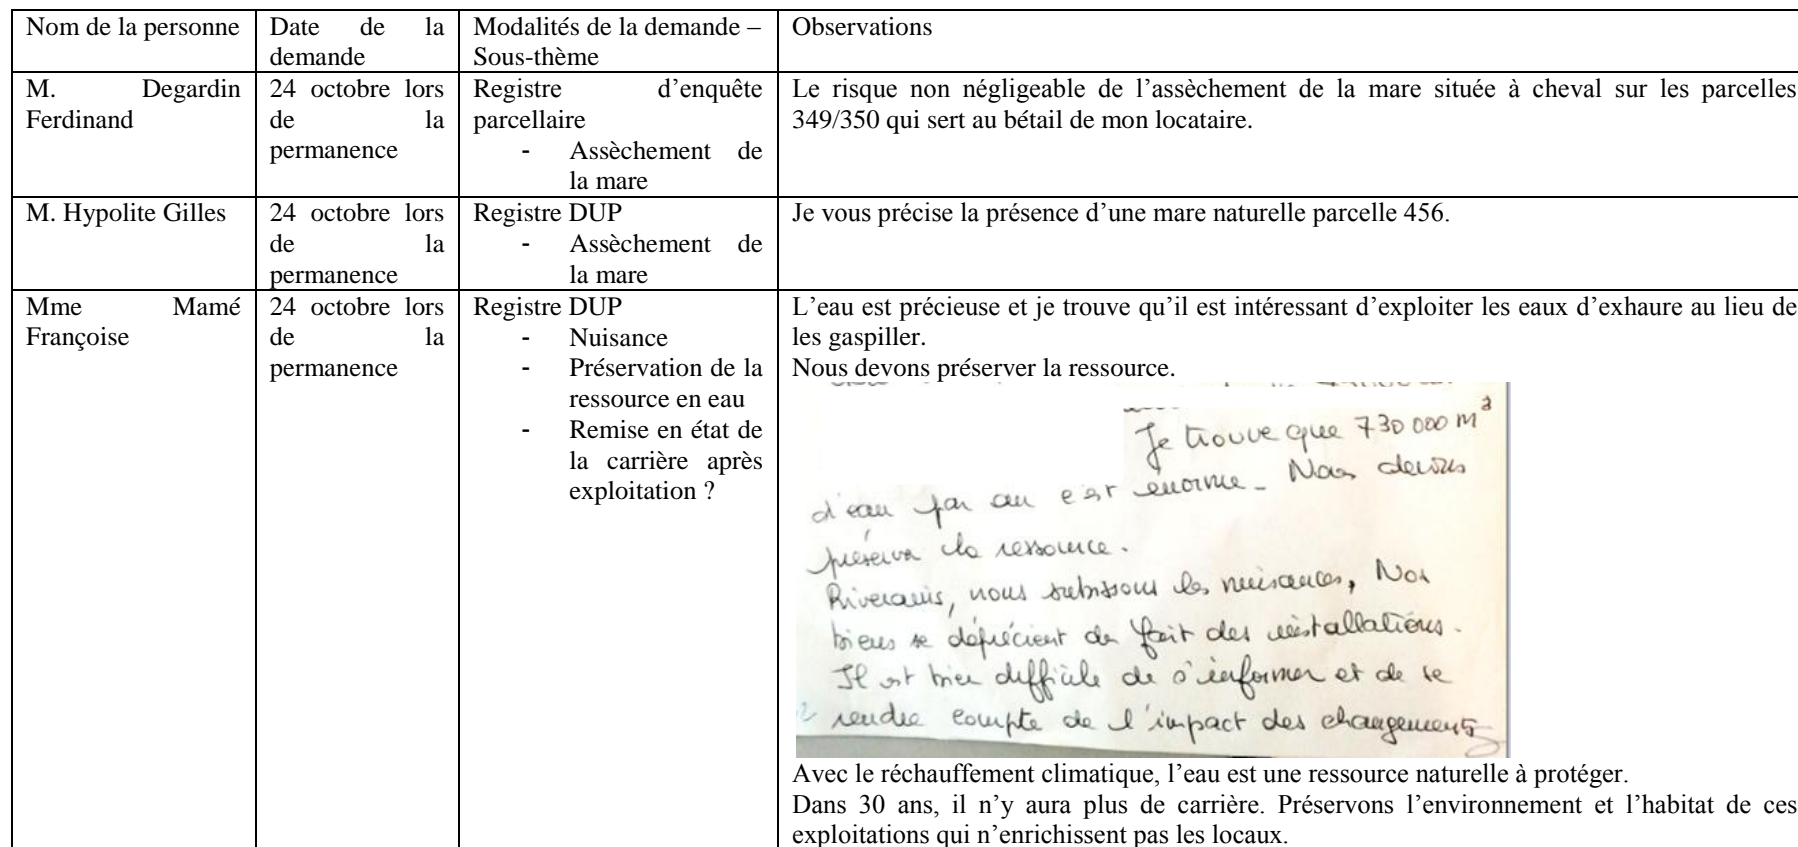 Nom de la personne
Date de la
demande
Modalités de la demande –
Sous-thème
Observations
M. Degardin
Ferdinand
24 octobre lors
de la
permanence
Registre d’enquête
parcellaire
- Assèchement de
la mare
Le risque non négligeable de l’assèchement de la mare située à cheval sur les parcelles
349/350 qui sert au bétail de mon locataire.
M. Hypolite Gilles
24 octobre lors
de la
permanence
Registre DUP
- Assèchement de
la mare
Je vous précise la présence d’une mare naturelle parcelle 456.
Mme Mamé
Françoise
24 octobre lors
de la
permanence
Registre DUP
- Nuisance
- Préservation de la
ressource en eau
- Remise en état de
la carrière après
exploitation ?
L’eau est précieuse et je trouve qu’il est intéressant d’exploiter les eaux d’exhaure au lieu de
les gaspiller.
Nous devons préserver la ressource.
Je trouve que 730 000 m³
d'eau par an c'est énorme. Nous devons
préserver la ressource.
Riverains, nous subissons les nuisances, Nos
biens se déprécient du fait des installations.
Il est bien difficile de s'informer et de se
rendre compte de l'impact des changements
Avec le réchauffement climatique, l’eau est une ressource naturelle à protéger.
Dans 30 ans, il n’y aura plus de carrière. Préservons l’environnement et l’habitat de ces
exploitations qui n’enrichissent pas les locaux.